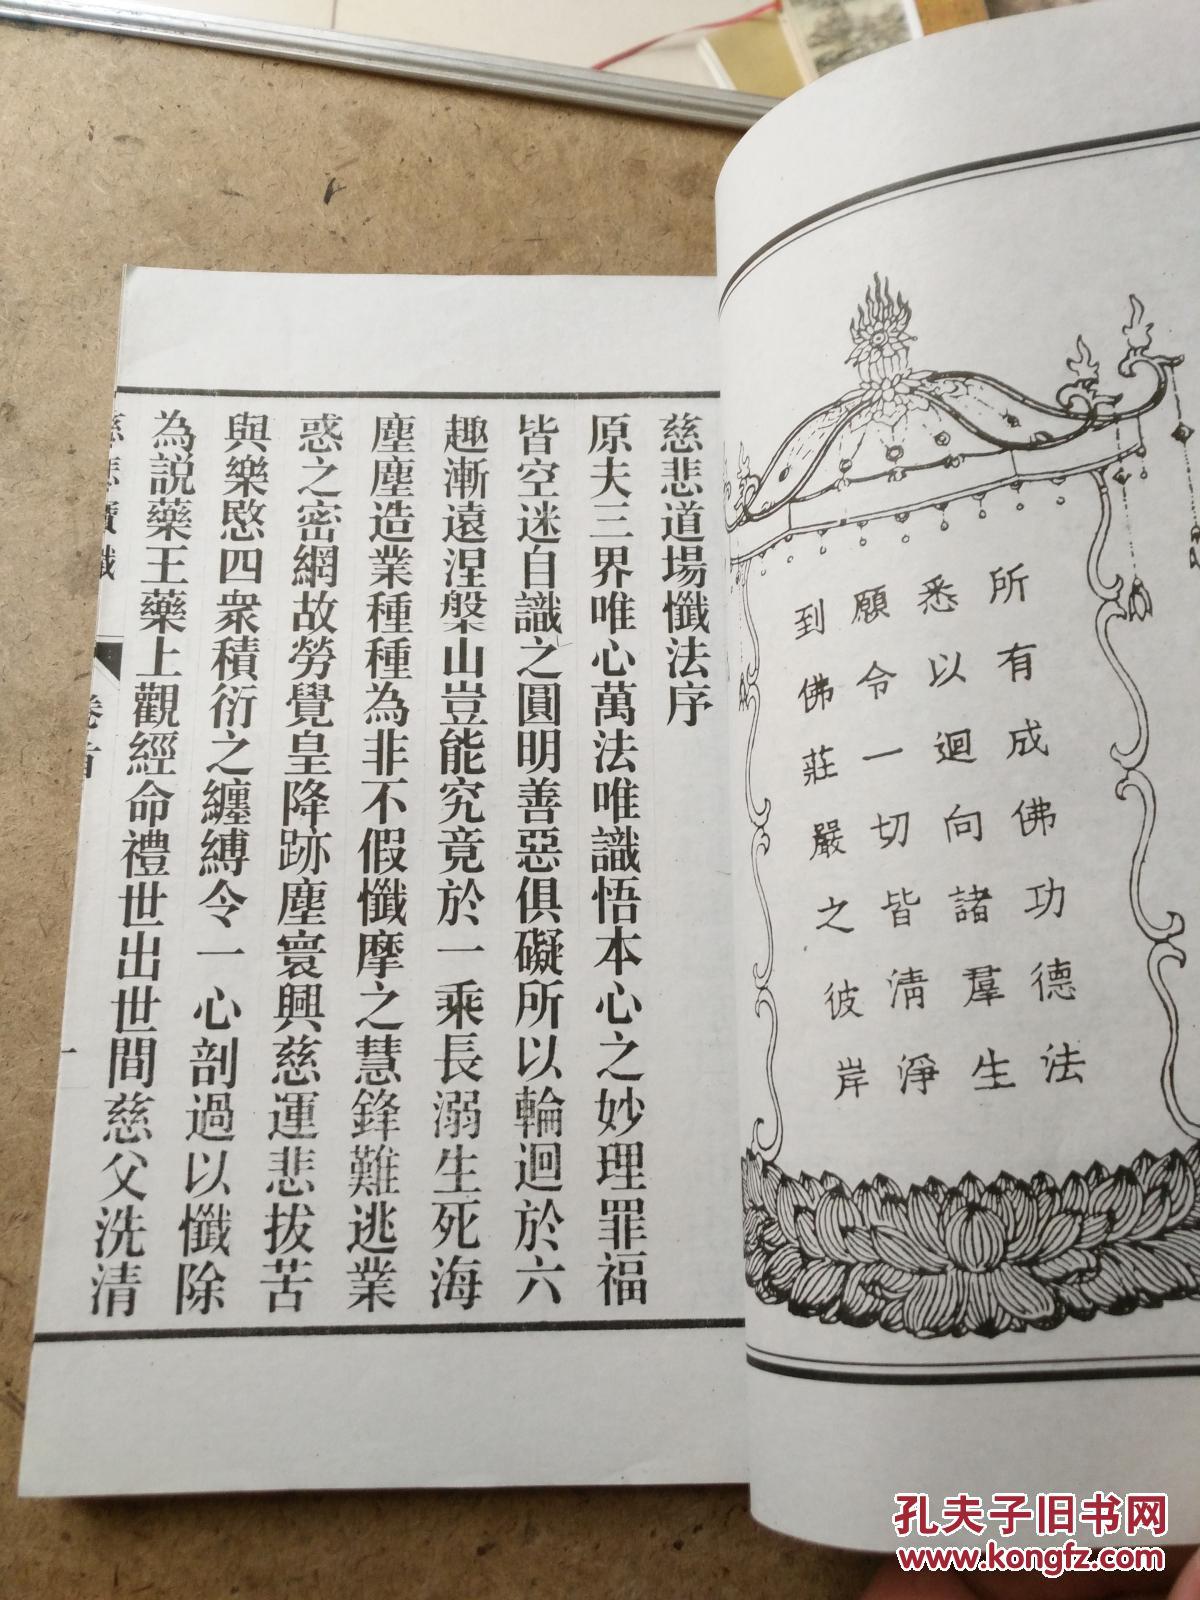 所有成佛功德法
悉以迴向諸羣生
願令一切皆清淨
到佛莊嚴之彼岸
慈悲道場懺法序
原夫三界唯心萬法唯識悟本心之妙理罪福
皆空迷自識之圓明善惡俱礙所以輪迴於六
趣漸遠涅槃山豈能究竟於一乘長溺生死海
塵塵造業種種為非不假懺摩之慧鋒難逃業
惑之密網故勞覺皇降跡塵寰興慈運悲拔苦
與樂愍四衆積衍之纏縛令一心剖過以懺除
為説藥王藥上觀經命禮世出世間慈父洗清
慈悲寶懺 卷首 一
孔夫子旧书网
www.kongfz.com